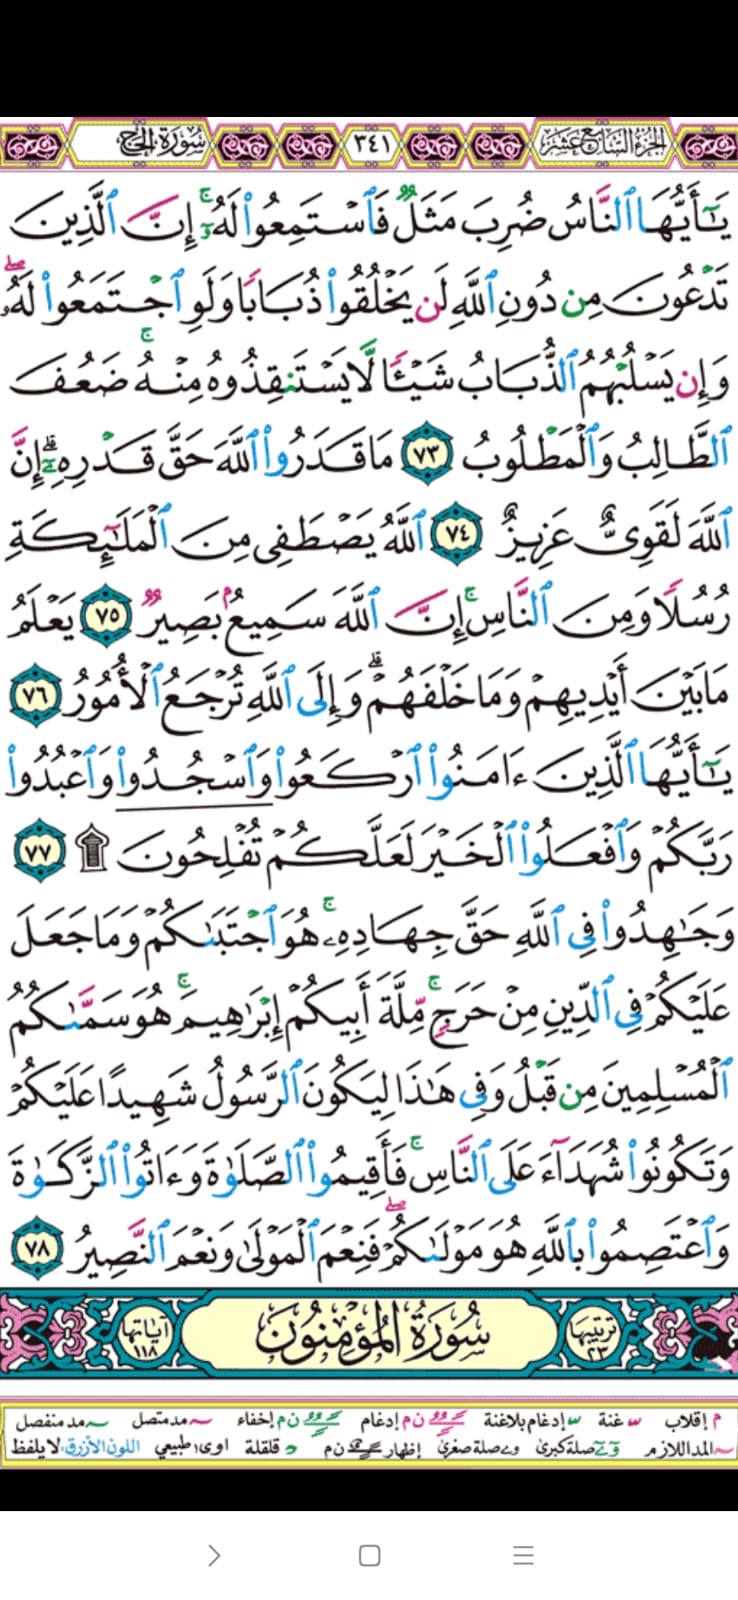 الجزء السابع عشر
٣٤١
سورة الحج
يَـٰٓأَيُّهَا ٱلنَّاسُ ضُرِبَ مَثَلٌ فَٱسْتَمِعُوا۟ لَهُۥٓ ۚ إِنَّ ٱلَّذِينَ
تَدْعُونَ مِن دُونِ ٱللَّهِ لَن يَخْلُقُوا۟ ذُبَابًا وَلَوِ ٱجْتَمَعُوا۟ لَهُۥ ۖ
وَإِن يَسْلُبْهُمُ ٱلذُّبَابُ شَيْـًٔا لَّا يَسْتَنقِذُوهُ مِنْهُ ۚ ضَعُفَ
ٱلطَّالِبُ وَٱلْمَطْلُوبُ ٧٣ مَا قَدَرُوا۟ ٱللَّهَ حَقَّ قَدْرِهِۦٓ ۗ إِنَّ
ٱللَّهَ لَقَوِىٌّ عَزِيزٌ ٧٤ ٱللَّهُ يَصْطَفِى مِنَ ٱلْمَلَـٰٓئِكَةِ
رُسُلًا وَمِنَ ٱلنَّاسِ ۚ إِنَّ ٱللَّهَ سَمِيعٌۢ بَصِيرٌ ٧٥ يَعْلَمُ
مَا بَيْنَ أَيْدِيهِمْ وَمَا خَلْفَهُمْ ۗ وَإِلَى ٱللَّهِ تُرْجَعُ ٱلْأُمُورُ ٧٦
يَـٰٓأَيُّهَا ٱلَّذِينَ ءَامَنُوا۟ ٱرْكَعُوا۟ وَٱسْجُدُوا۟ وَٱعْبُدُوا۟
رَبَّكُمْ وَٱفْعَلُوا۟ ٱلْخَيْرَ لَعَلَّكُمْ تُفْلِحُونَ ۩ ٧٧
وَجَـٰهِدُوا۟ فِى ٱللَّهِ حَقَّ جِهَادِهِۦ ۚ هُوَ ٱجْتَبَىٰكُمْ وَمَا جَعَلَ
عَلَيْكُمْ فِى ٱلدِّينِ مِنْ حَرَجٍ ۚ مِّلَّةَ أَبِيكُمْ إِبْرَٰهِيمَ ۚ هُوَ سَمَّىٰكُمُ
ٱلْمُسْلِمِينَ مِن قَبْلُ وَفِى هَـٰذَا لِيَكُونَ ٱلرَّسُولُ شَهِيدًا عَلَيْكُمْ
وَتَكُونُوا۟ شُهَدَآءَ عَلَى ٱلنَّاسِ ۚ فَأَقِيمُوا۟ ٱلصَّلَوٰةَ وَءَاتُوا۟ ٱلزَّكَوٰةَ
وَٱعْتَصِمُوا۟ بِٱللَّهِ هُوَ مَوْلَىٰكُمْ ۖ فَنِعْمَ ٱلْمَوْلَىٰ وَنِعْمَ ٱلنَّصِيرُ ٧٨
ترتيبها ٢٣
سُورَةُ المُؤْمِنُونَ
آياتها ١١٨
م إقلاب س غنة س إدغام بلا غنة ن م إدغام ن م إخفاء مد متصل مد منفصل
المد اللازم صلة كبرى صلة صغرى إظهار ن م د قلقلة اوى طبيعي اللون الأزرق: لا يلفظ